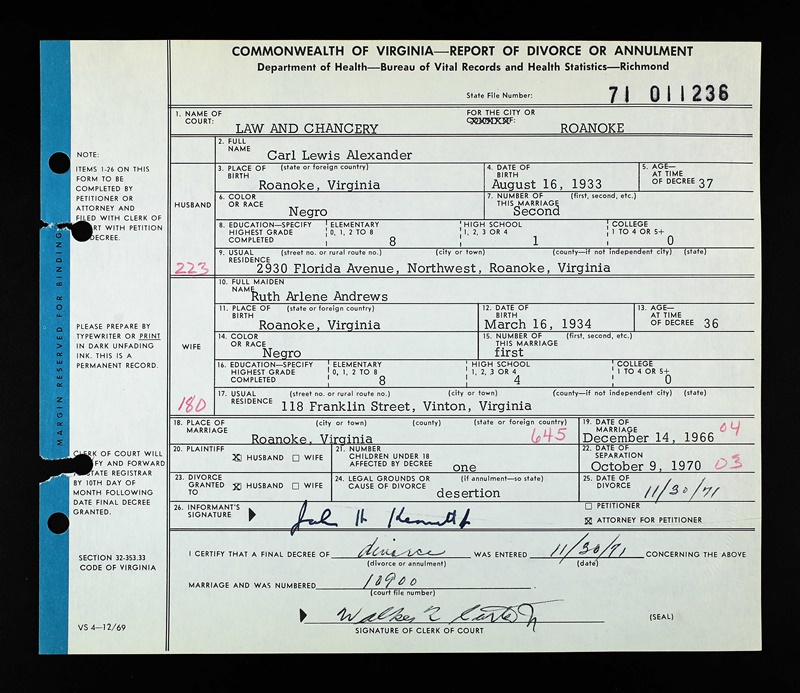 COMMONWEALTH OF VIRGINIA—REPORT OF DIVORCE OR ANNULMENT
Department of Health—Bureau of Vital Records and Health Statistics—Richmond
State File Number: 71 011236
1. NAME OF COURT: LAW AND CHANCERY FOR THE CITY OR XXXXXX OF: ROANOKE
NOTE:
ITEMS 1-26 ON THIS
FORM TO BE
COMPLETED BY
PETITIONER OR
ATTORNEY AND
FILED WITH CLERK OF
COURT WITH PETITION
DECREE.
MARGIN RESERVED FOR BINDING
PLEASE PREPARE BY
TYPEWRITER OR PRINT
IN DARK UNFADING
INK. THIS IS A
PERMANENT RECORD.
CLERK OF COURT WILL
FY AND FORWARD
STATE REGISTRAR
BY 10TH DAY OF
MONTH FOLLOWING
DATE FINAL DECREE
GRANTED.
SECTION 32-353.33
CODE OF VIRGINIA
VS 4—12/69
HUSBAND
223
2. FULL NAME Carl Lewis Alexander
3. PLACE OF BIRTH (state or foreign country) Roanoke, Virginia
4. DATE OF BIRTH August 16, 1933
5. AGE— AT TIME OF DECREE 37
6. COLOR OR RACE Negro
7. NUMBER OF THIS MARRIAGE (first, second, etc.) Second
8. EDUCATION—SPECIFY HIGHEST GRADE COMPLETED
ELEMENTARY 0, 1, 2 TO 8 8
HIGH SCHOOL 1, 2, 3 OR 4 1
COLLEGE 1 TO 4 OR 5+ 0
9. USUAL RESIDENCE (street no. or rural route no.) (city or town) (county—if not independent city) (state)
2930 Florida Avenue, Northwest, Roanoke, Virginia
WIFE
180
10. FULL MAIDEN NAME Ruth Arlene Andrews
11. PLACE OF BIRTH (state or foreign country) Roanoke, Virginia
12. DATE OF BIRTH March 16, 1934
13. AGE— AT TIME OF DECREE 36
14. COLOR OR RACE Negro
15. NUMBER OF THIS MARRIAGE (first, second, etc.) first
16. EDUCATION—SPECIFY HIGHEST GRADE COMPLETED
ELEMENTARY 0, 1, 2 TO 8 8
HIGH SCHOOL 1, 2, 3 OR 4 4
COLLEGE 1 TO 4 OR 5+ 0
17. USUAL RESIDENCE (street no. or rural route no.) (city or town) (county—if not independent city) (state)
118 Franklin Street, Vinton, Virginia
18. PLACE OF MARRIAGE (city or town) (county) (state or foreign country) Roanoke, Virginia 645
19. DATE OF MARRIAGE December 14, 1966 04
20. PLAINTIFF X HUSBAND WIFE
21. NUMBER CHILDREN UNDER 18 AFFECTED BY DECREE one
22. DATE OF SEPARATION October 9, 1970 03
23. DIVORCE GRANTED TO X HUSBAND WIFE
24. LEGAL GROUNDS OR CAUSE OF DIVORCE (if annulment—so state) desertion
25. DATE OF DIVORCE 11/30/71
26. INFORMANT'S SIGNATURE John H Kennett Jr
PETITIONER
X ATTORNEY FOR PETITIONER
I CERTIFY THAT A FINAL DECREE OF divorce WAS ENTERED 11/30/71 CONCERNING THE ABOVE
(divorce or annulment) (date)
MARRIAGE AND WAS NUMBERED 10900
(court file number)
Walker R Carter Jr (SEAL)
SIGNATURE OF CLERK OF COURT